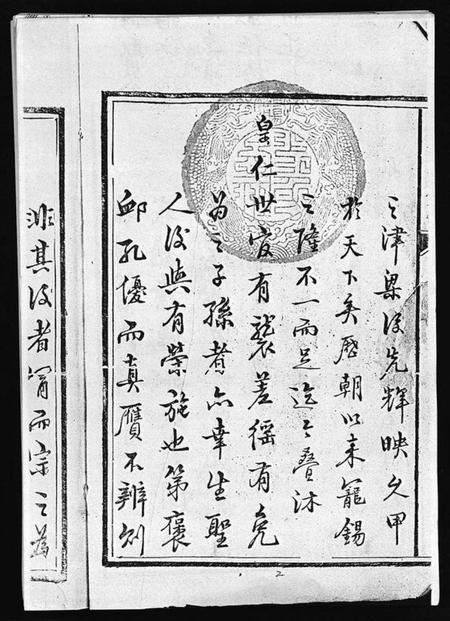 之津梁後先輝映久甲
於天下矣歷朝以來寵錫
之隆不一而足迄今疊沐
皇仁世官有襲差徭有免
為之子孫者亦幸生聖
人後與有榮施也第褒
卹孔優而真贋不辨則
非其後者冐而宗之為
2